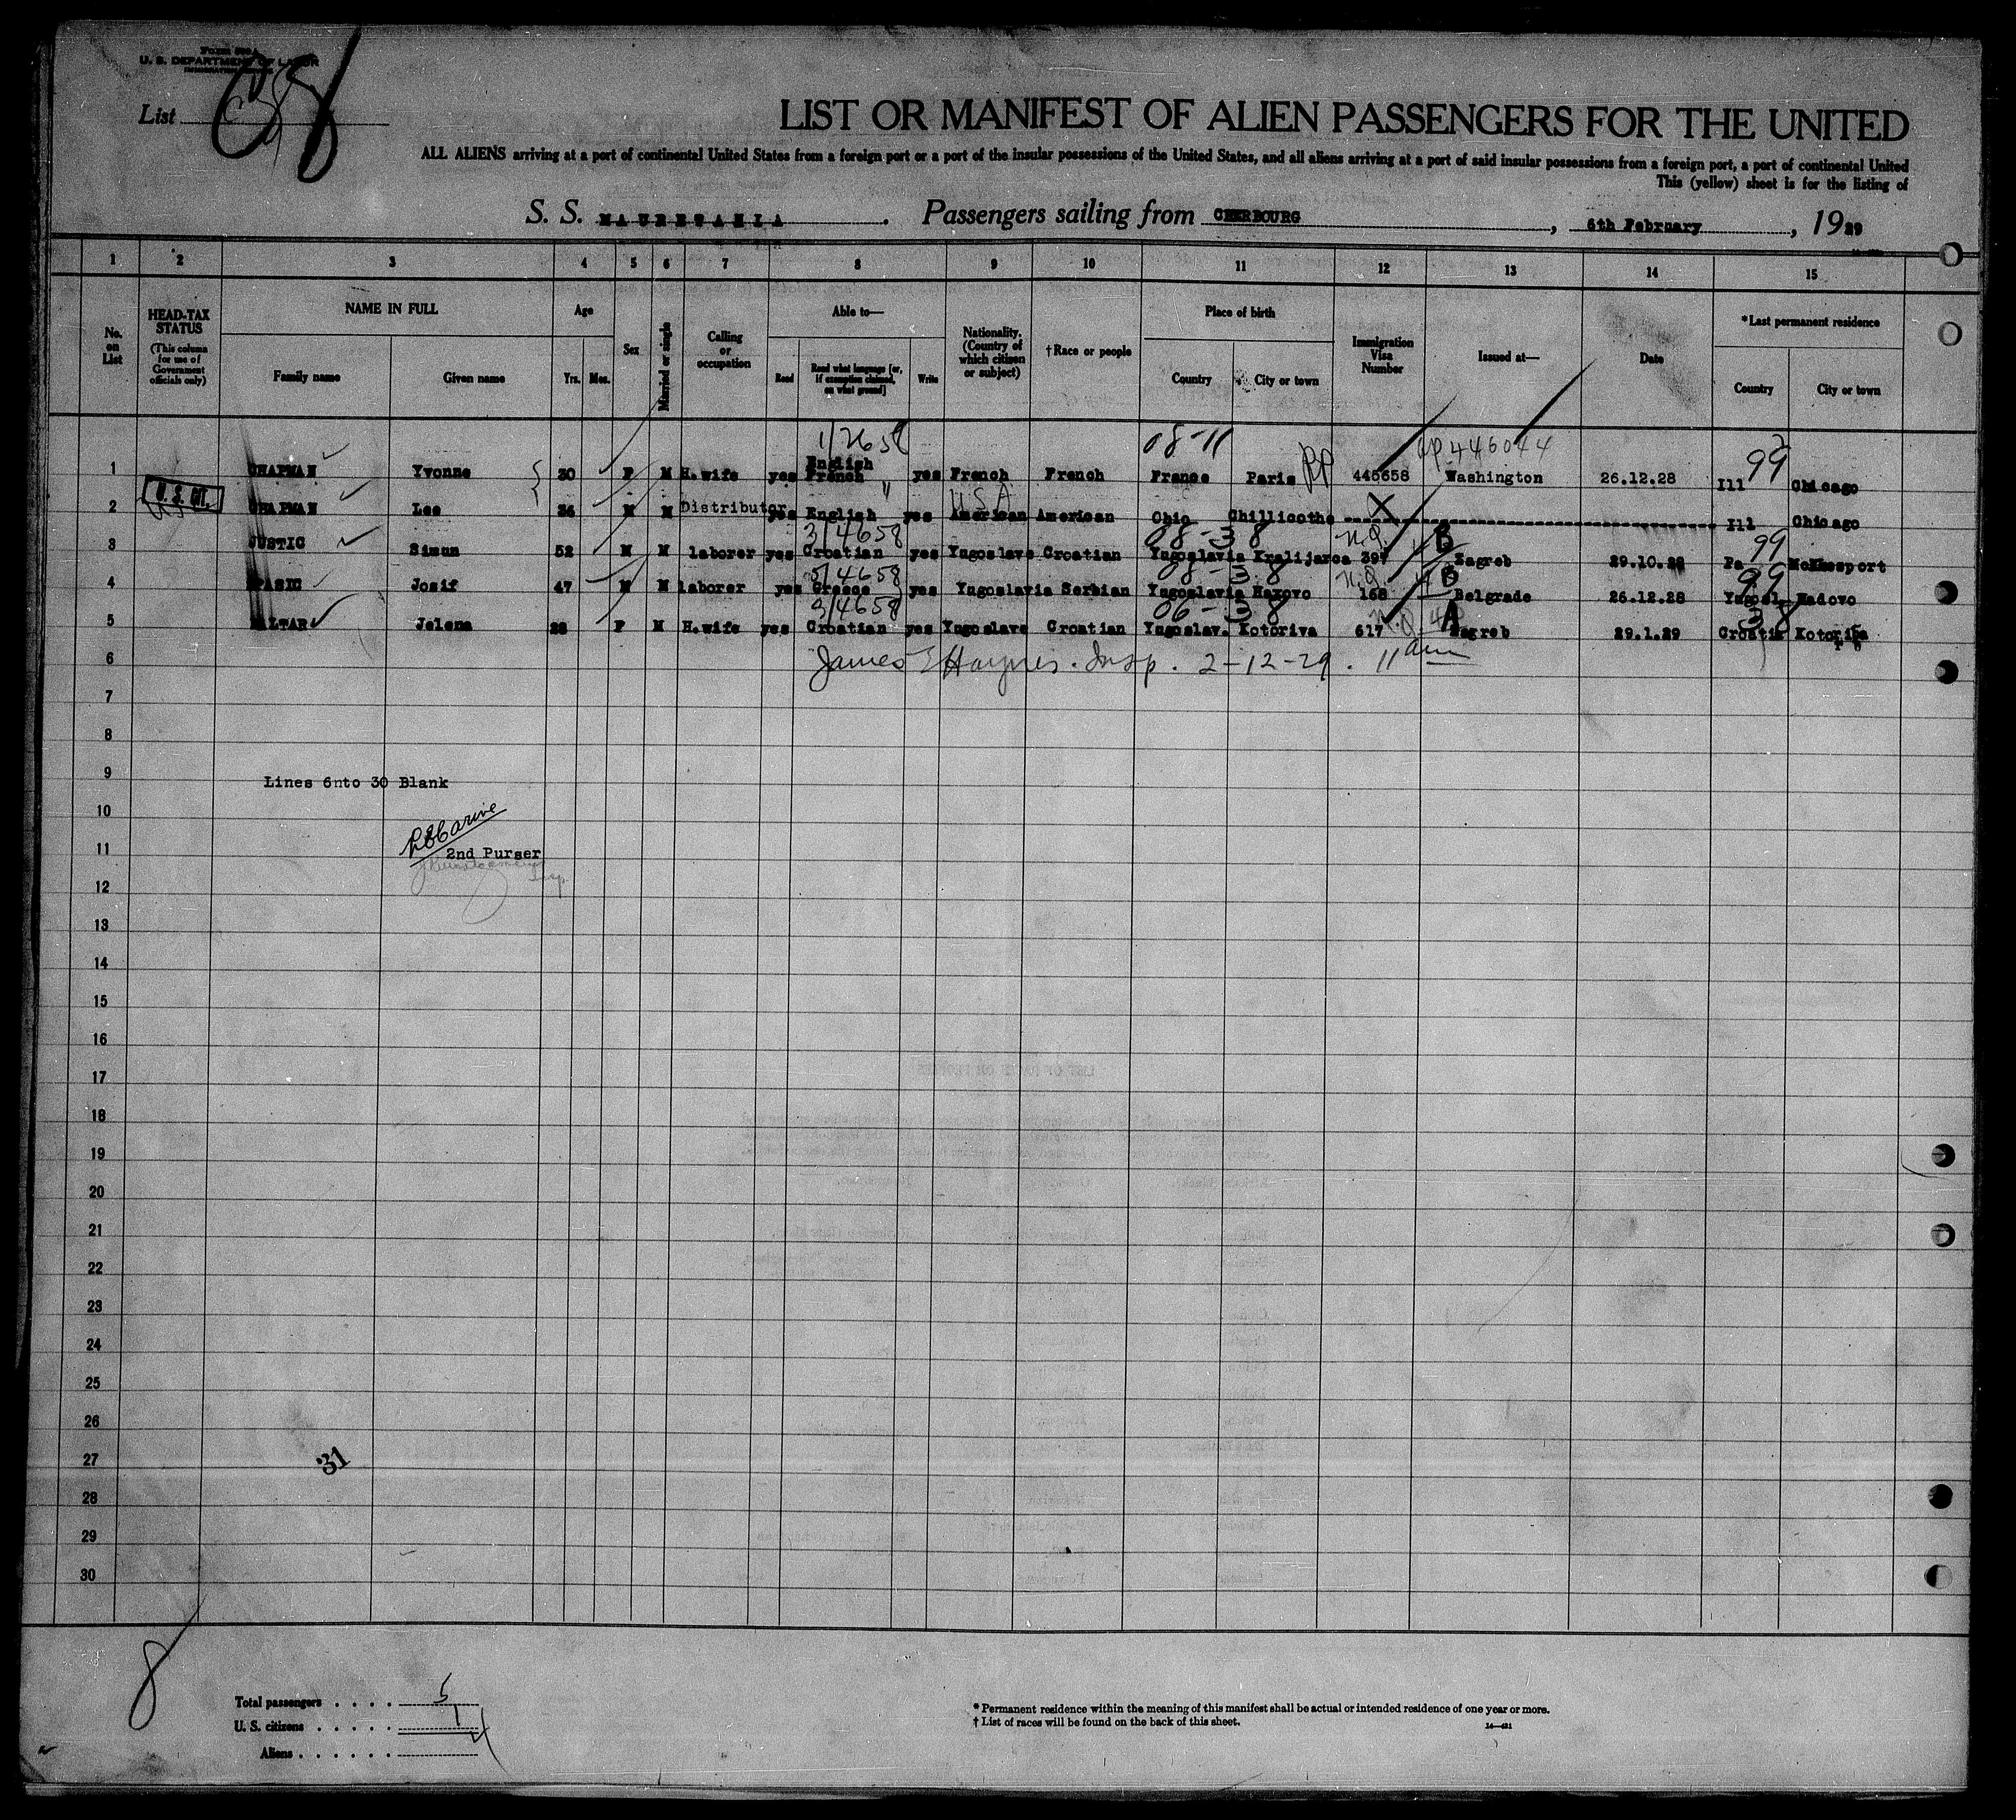 Form 500 A
U. S. DEPARTMENT OF LABOR
List
LIST OR MANIFEST OF ALIEN PASSENGERS FOR THE UNITED
ALL ALIENS arriving at a port of continental United States from a foreign port or a port of the insular possessions of the United States, and all aliens arriving at a port of said insular possessions from a foreign port, a port of continental United
This (yellow) sheet is for the listing of
S. S. MAURETANIA. Passengers sailing from CHERBOURG, 6th February, 1929
1 2 3 4 5 6 7 8 9 10 11 12 13 14 15
No. on List
HEAD-TAX STATUS (This column for use of Government officials only)
NAME IN FULL Family name Given name
Age Yrs. Mos.
Sex
Married or single
Calling or occupation
Able to— Read Read what language [or, if exemption claimed, on what ground] Write
Nationality. (Country of which citizen or subject)
†Race or people
Place of birth Country City or town
Immigration Visa Number
Issued at—
Date
*Last permanent residence Country City or town
1/2658 08-11 RP 446044 99
1 CHAPMAN Yvonne 30 F M H.wife yes English French yes French French France Paris 445658 Washington 26.12.28 Ill Chicago
U. S. CIT. " U S A X
2 CHAPMAN Lee 36 M M Distributor yes English yes American American Ohio Chillicothe Ill Chicago
3/4658 08-38 N.Q. B 99
3 JUSTIC Simun 52 M M laborer yes Croatian yes Yugoslave Croatian Yugoslavia Kralijarca 397 Zagreb 29.10.28 Pa McKeesport
5/4658 08-38 N.Q. B 99
4 Josif 47 M M laborer yes Greece yes Yugoslavia Serbian Yugoslavia 168 Belgrade 26.12.28 Yugosl
3/4658 06-38 A 38
5 Jelena 28 F M H.wife yes Croatian yes Yugoslave Croatian Yugoslav. Kotoriva 617 Zagreb 29.1.29 Croatia
6 James E Haynes. Insp. 2-12-29. 11 am
7
8
9 Lines 6nto 30 Blank
10
11 2nd Purser
Insp.
12
13
14
15
16
17
18
19
20
21
22
23
24
25
26
27 31
28
29
30
8
Total passengers . . . . 5
U. S. citizens . . . . . 1
Aliens . . . . . . 4
* Permanent residence within the meaning of this manifest shall be actual or intended residence of one year or more.
† List of races will be found on the back of this sheet.
14—421